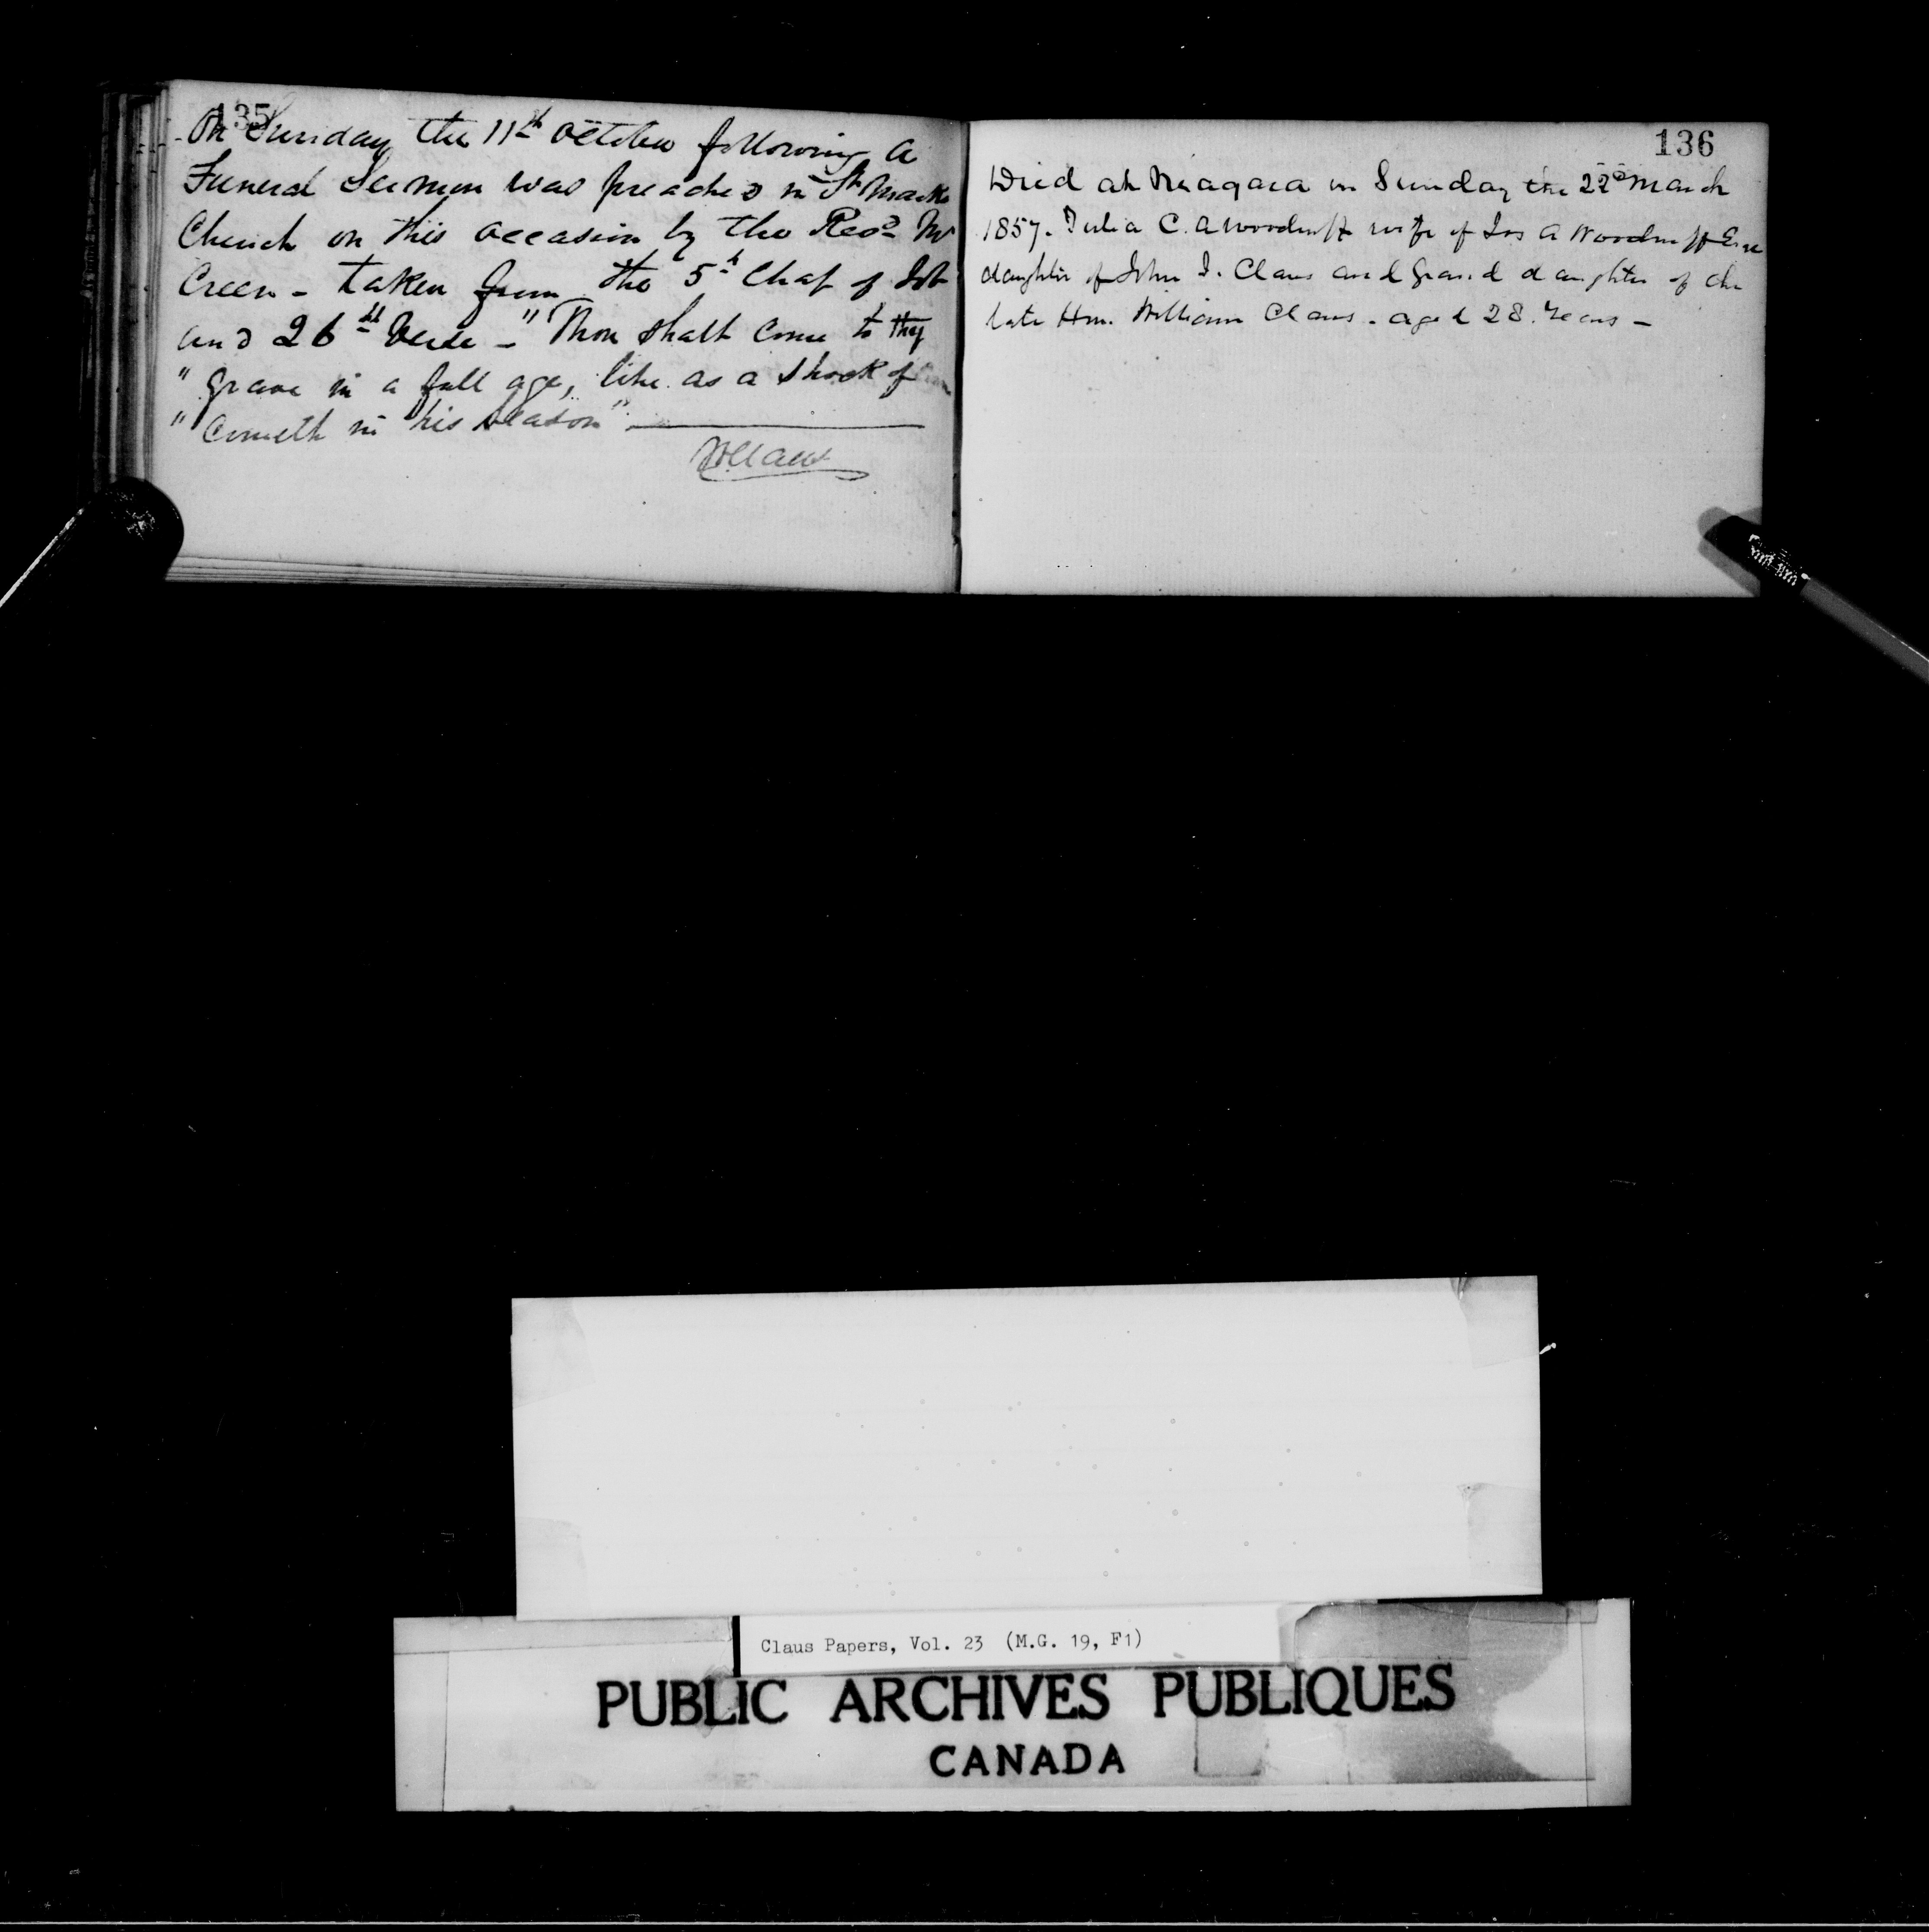 135
On Sunday the 11th October following a
Funeral Sermon was preached in St Marks
Church on this occasion by the Revd Mr
Creen - taken from the 5th Chap of Job
and 26th Verse - "Thou shalt come to thy
" grave in a full age, like as a shock of
" cometh in his season"
WClaus
136
Died at Niagara on Sunday the 22d March
1857. Julia C. A Woodruff wife of Jos A Woodruff Esqr
daughter of John J. Claus and grand daughter of the
late Hon. William Claus. aged 28. Years -
Claus Papers, Vol. 23 (M.G. 19, F1)
PUBLIC ARCHIVES PUBLIQUES
CANADA